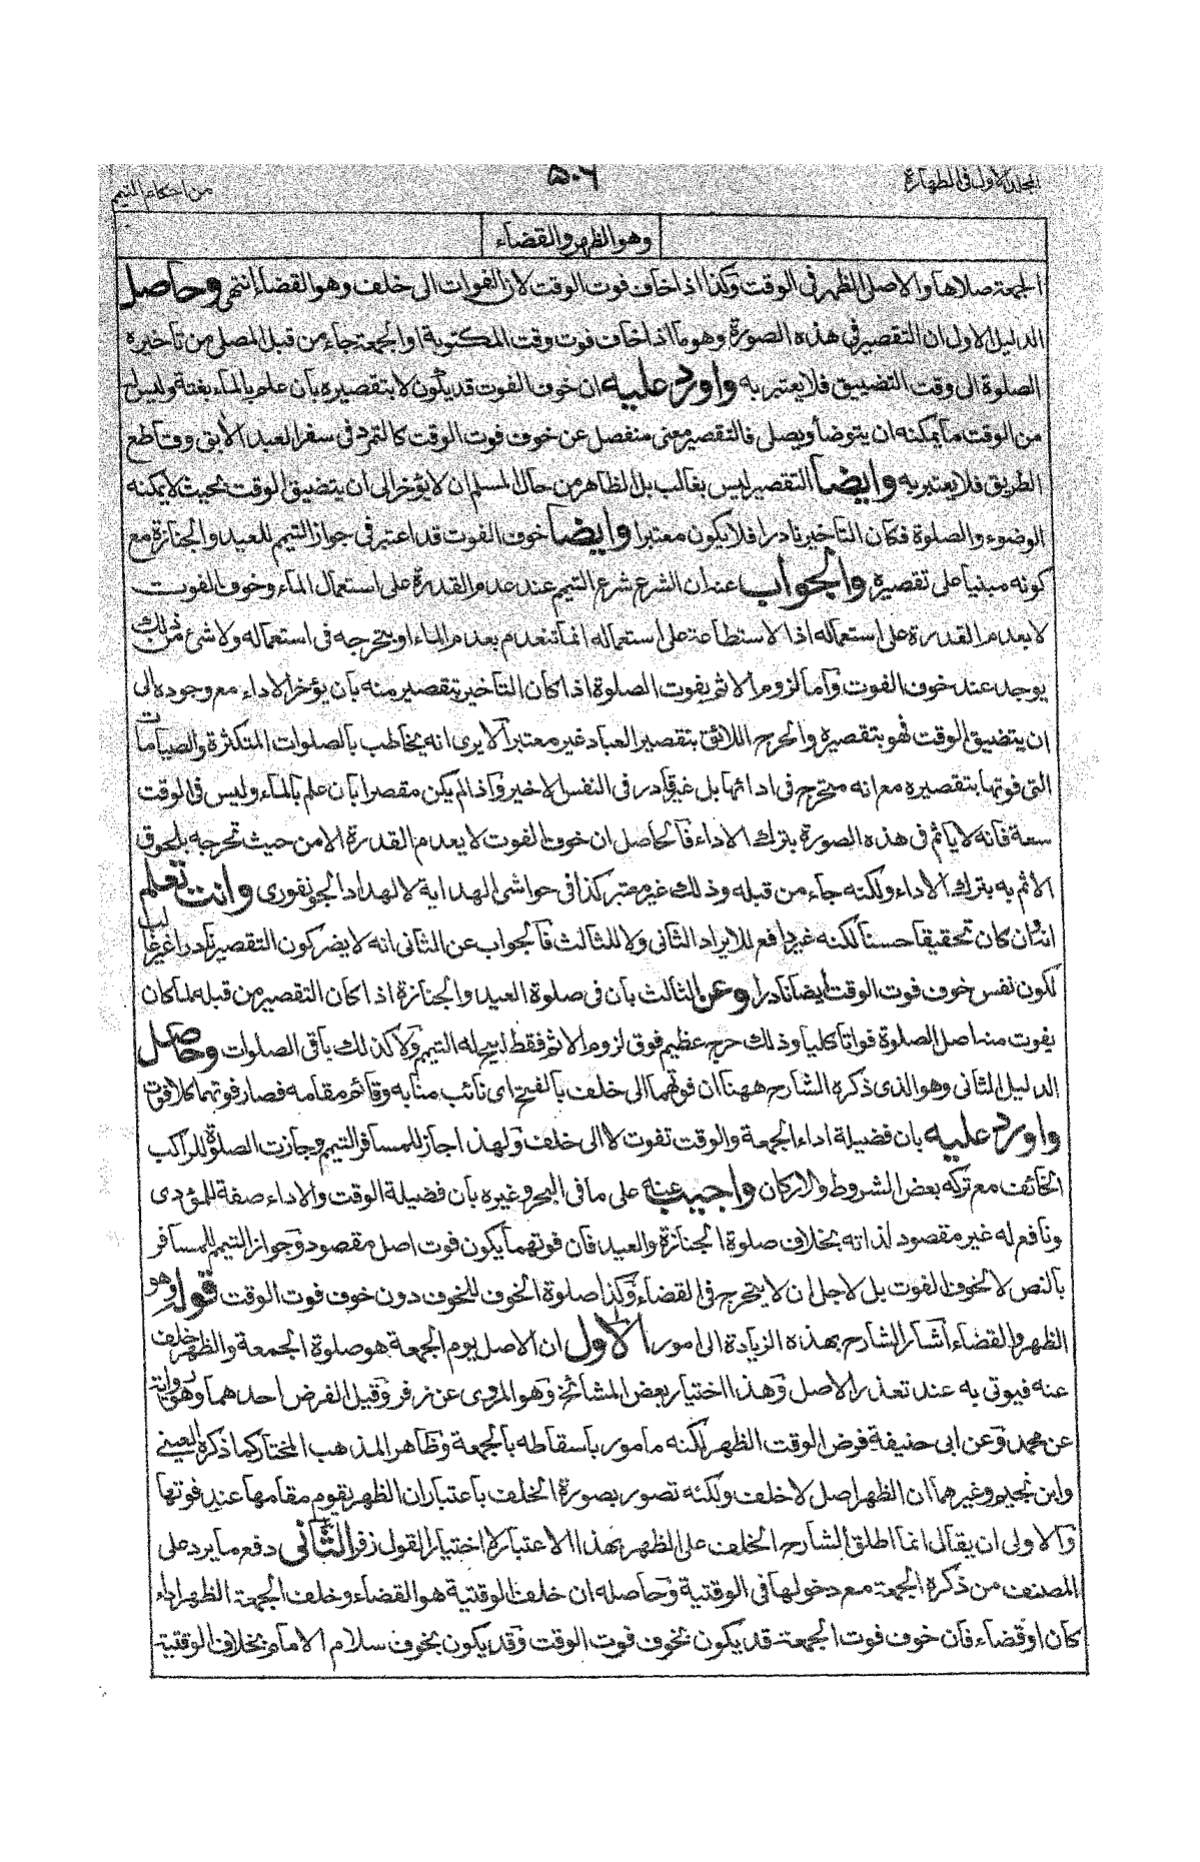 المجلد الاول فى الطهارة
۵۰۶
من احكام التيمم
وهو الظهر والقضاء
الجمعة صلاها والاصل الظهر فى الوقت وكذا اذا خاف فوت الوقت لان الفوات الى خلف وهو القضاء انتهى وحاصل
الدليل الاول ان التقصير فى هذه الصورة وهو ما اذا خاف فوت وقت المكتوبة او الجمعة جاء من قبل المصلى من تاخيره
الصلوة الى وقت التضييق فلا يعتبر به واورد عليه ان خوف الفوت قد يكون لا بتقصيره بان علم بالماء بغتة وليس له
من الوقت ما يمكنه ان يتوضأ ويصلى فالتقصير معنى منفصل عن خوف فوت الوقت كالتمرد فى سفر العبد الآبق وقاطع
الطريق فلا يعتبر به وايضا التقصير ليس بغالب بل الظاهر من حال المسلم ان لا يؤخر الى ان يتضيق الوقت بحيث لا يمكنه
الوضوء والصلوة فكان التاخير نادرا فلا يكون معتبرا وايضا خوف الفوت قد اعتبر فى جواز التيمم للعيد والجنازة مع
كونه مبنيا على تقصيره والجواب عنه ان الشرع شرع التيمم عند عدم القدرة على استعمال الماء وخوف الفوت
لا يعدم القدرة على استعماله اذ الاستطاعة على استعماله انما تنعدم بعدم الماء او بتحرجه فى استعماله ولا شئ من ذلك
يوجد عند خوف الفوت واما لزوم الاثم بفوت الصلوة اذا كان التاخير بتقصير منه بان يؤخر الاداء مع وجوده الى
ان يتضيق الوقت فهو بتقصيره والحرج اللائق بتقصير العباد غير معتبر الا يرى انه يخاطب بالصلوات المتكثرة والصيامات
التى فوتها بتقصيره مع انه متحرج فى ادائها بل غير قادر فى النفس الاخير واذا لم يكن مقصرا بان علم بالماء وليس فى الوقت
سعة فانه لا ياثم فى هذه الصورة بترك الاداء فالحاصل ان خوف الفوت لا يعدم القدرة الا من حيث تحرجه بلحوق
الاثم به بترك الاداء ولكنه جاء من قبله وذلك غير معتبر كذا فى حواشى الهداية لالهداد الجونفورى وانت تعلم
انه ان كان تحقيقا حسنا لكنه غير دافع للايراد الثانى ولا للثالث فالجواب عن الثانى انه لا يضر كون التقصير نادرا غير غالب
لكون نفس خوف فوت الوقت ايضا نادرا وعن الثالث بان فى صلوة العيد والجنازة اذا كان التقصير من قبله لما كان
يفوت منه اصل الصلوة فواتا كليا وذلك حرج عظيم فوق لزوم الاثم فقط ابيح له التيمم ولا كذلك باقى الصلوات وحاصل
الدليل الثانى وهو الذى ذكره الشارح ههنا ان فوتهما الى خلف بالفتح اى نائب منابه وقائم مقامه فصار فوتهما كلا فوت
واورد عليه بان فضيلة اداء الجمعة والوقت تفوت لا الى خلف ولهذا جاز للمسافر التيمم وجازت الصلوة للراكب
الخائف مع تركه بعض الشروط والاركان واجيب عنه على ما فى البحر وغيره بان فضيلة الوقت والاداء صفة للمؤدى
وتابع له غير مقصود لذاته بخلاف صلوة الجنازة والعيد فان فوتهما يكون فوت اصل مقصود وجواز التيمم للمسافر
بالنص لا لخوف الفوت بل لاجل ان لا يتحرج فى القضاء وكذا صلوة الخوف للخوف دون خوف فوت الوقت قوله وهو
الظهر والقضاء اشار الشارح بهذه الزيادة الى امور الاول ان الاصل يوم الجمعة هو صلوة الجمعة والظهر خلف
عنه فيوتى به عند تعذر الاصل وهذا اختيار بعض المشائخ وهو المروى عن زفر وقيل الفرض احدهما وهو رواية
عن محمد وعن ابى حنيفة فرض الوقت الظهر لكنه مامور باسقاطه بالجمعة وظاهر المذهب المختار كما ذكره العينى
وابن نجيم وغيرهما ان الظهر اصل لا خلف ولكنه تصور بصورة الخلف باعتبار ان الظهر يقوم مقامها عند فوتها
والاولى ان يقال انما اطلق الشارح الخلف على الظهر بهذا الاعتبار لا اختيارا لقول زفر الثانى دفع ما يرد على
المصنف من ذكره الجمعة مع دخولها فى الوقتية وحاصله ان خلف الوقتية هو القضاء وخلف الجمعة الظهر اداء
كان او قضاء فان خوف فوت الجمعة قد يكون بخوف فوت الوقت وقد يكون بخوف سلام الامام بخلاف الوقتية